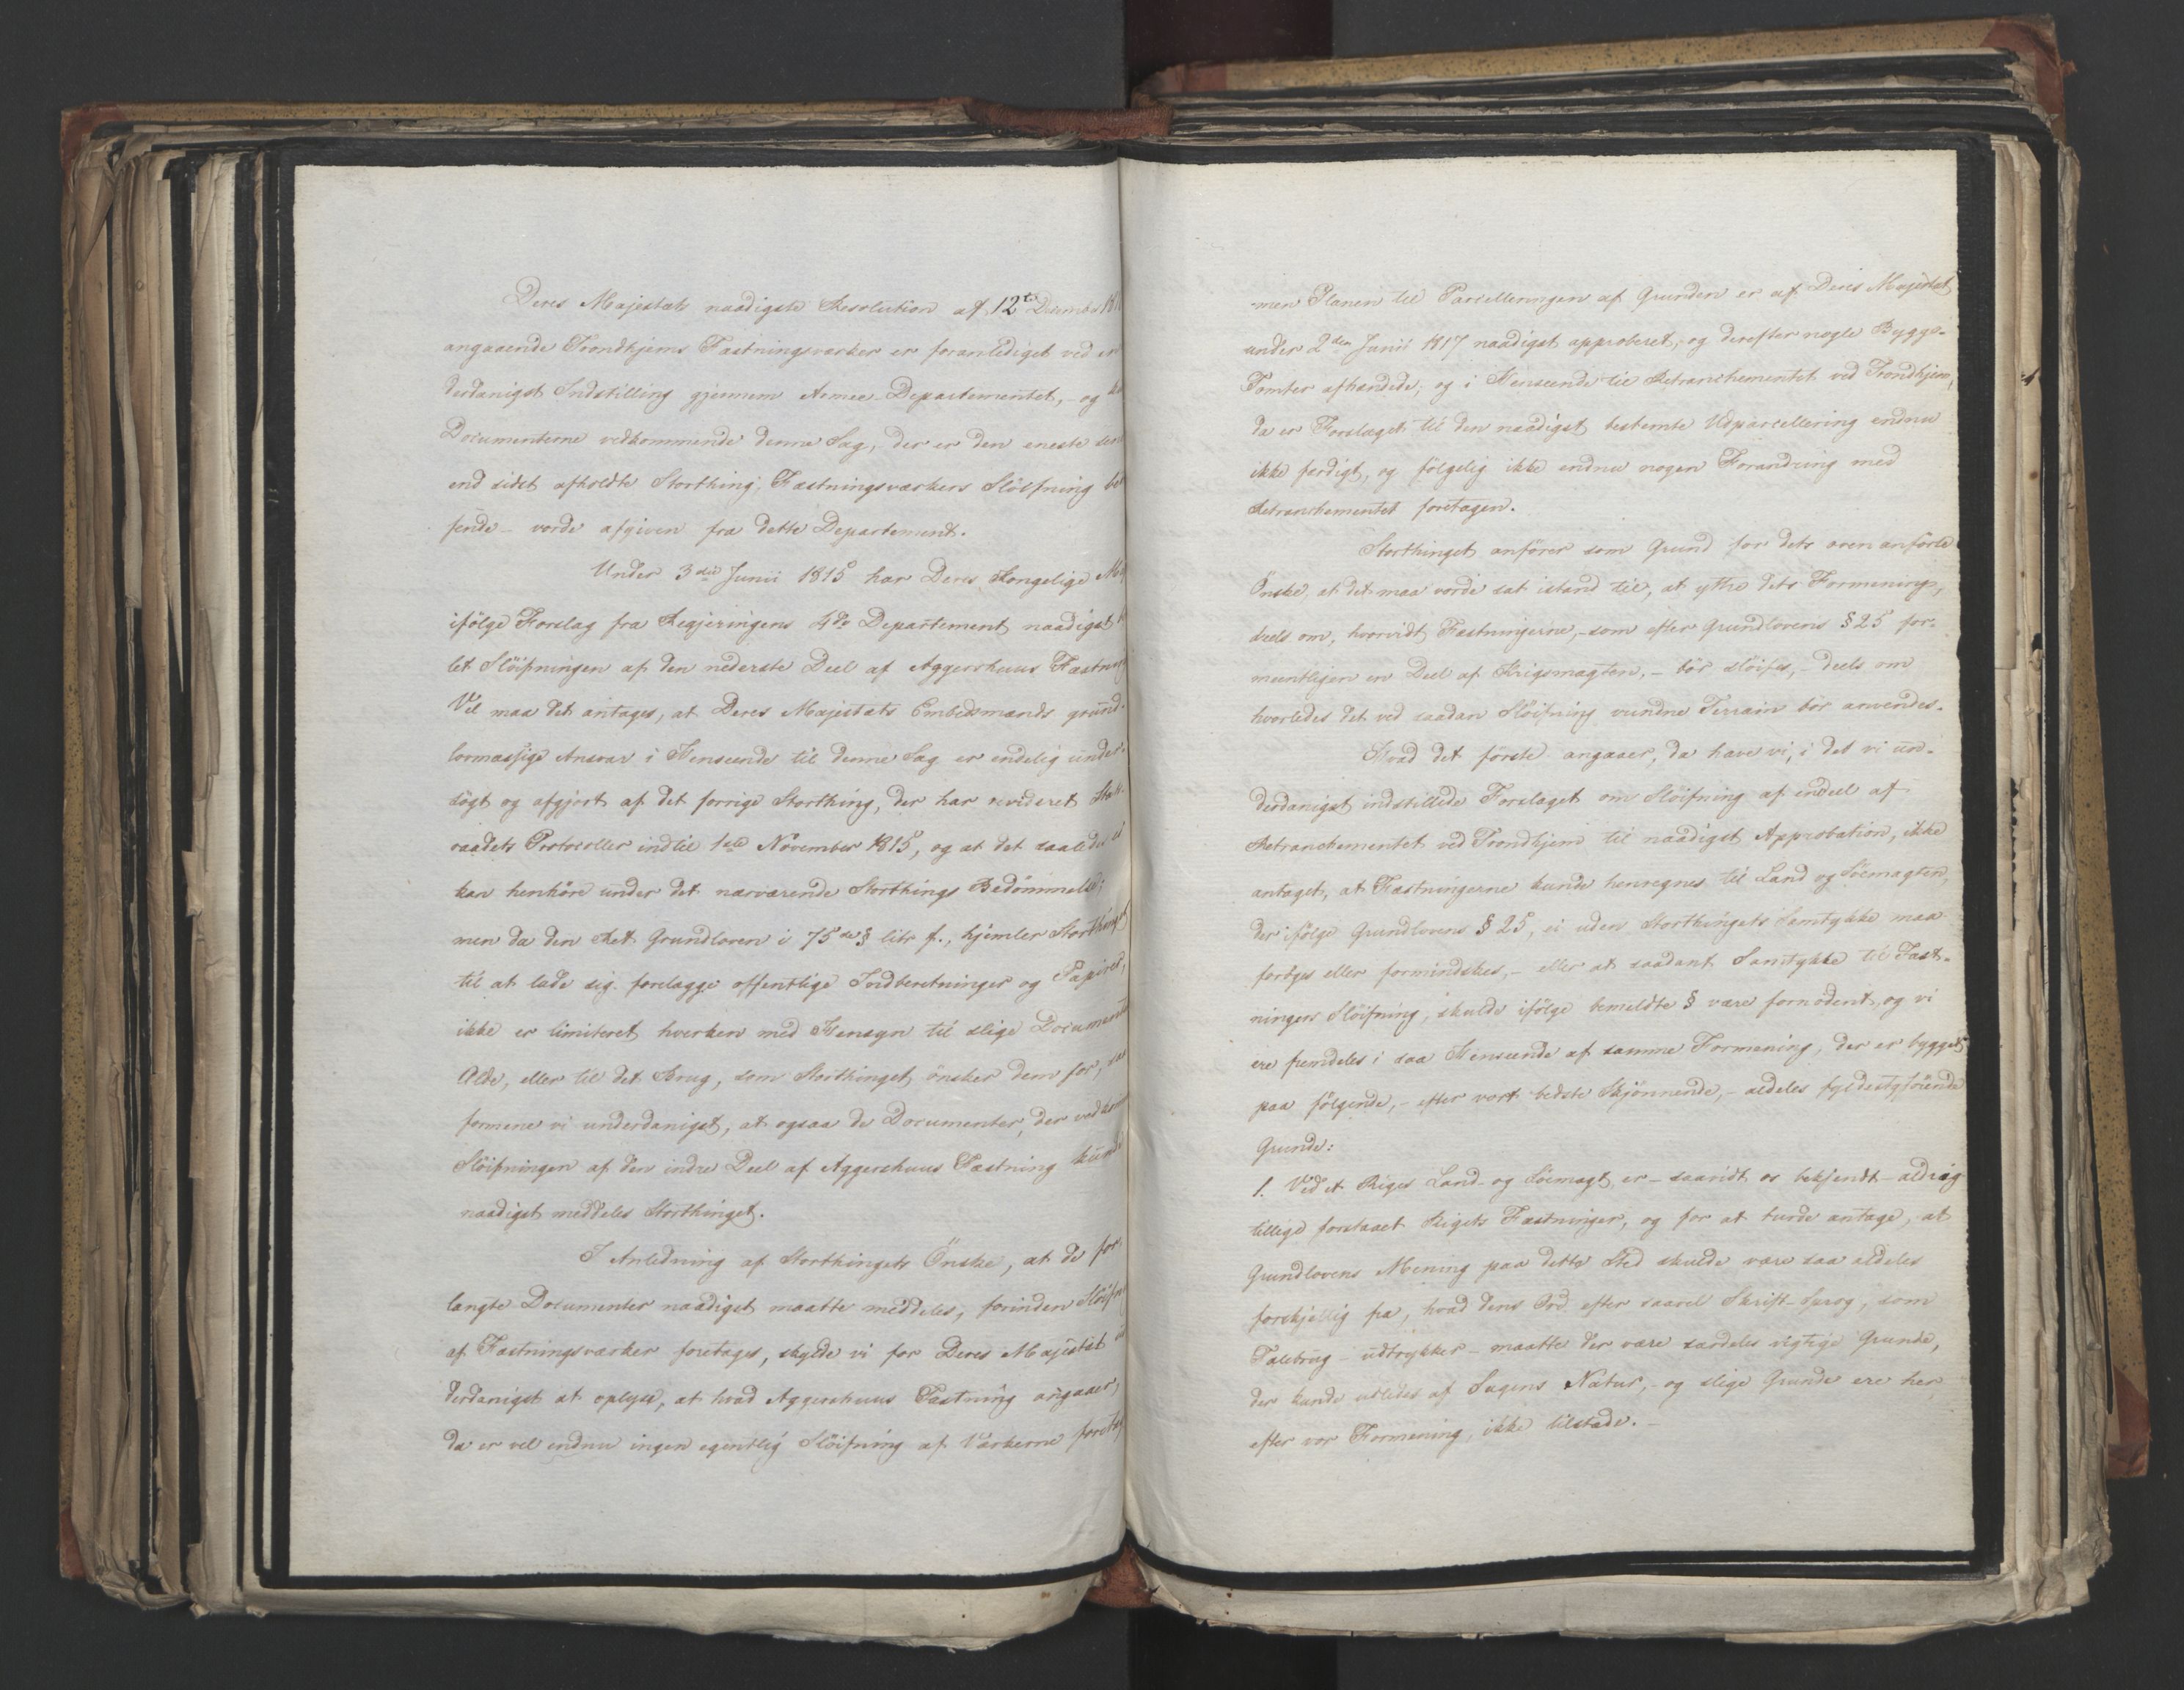 Deres Majestæts naadigste Resolution af 12te December
angaaende Trondhjems Fæstningsværker er foranlediget ved
derdanigst Indstilling gjennem Armee-Departementet, - og
Documenterne vedkommende denne Sag, der er den eneste
end sidst afholdte Storthing, Fæstningsværkers Slöifning
fende - vorde afgiven fra dette Departement.
Under 3die Junii 1815 har Deres Kongelige
ifölge Forslag fra Regjeringens 4de Departement naadigst
let Slöifningen af den nederste Deel af Aggershuus
Vel maa det antages, at Deres Majestæts Embedsmænds grund-
lovmæssige Ansvar i Henseende til denne Sag er endelig under-
sögt og afgjort af det forrige Storthing, der har revideret Stats-
raadets Protocoller indtil 1ste November 1815, og at det saaledes ei
kan henhöre under det nærværende Storthings Bedömmelse;
men da den Ret Grundloven i 75de § litr f., hjemler Storthinget
til at lade sig forelægge offentlige Indberetninger og Papirer,
ikke er limiteret hverken med Hensyn til slige Documenters
Alde, eller til det Brug, som Storthinget önsker dem for,
formene vi underdanigst, at ogsaa de Documenter, der
Slöifningen af den indre Deel af Aggershuus Fæstning kunde
naadigst meddeles Storthinget.
I Anledning af Storthingets Önske, at de for-
langte Documenter naadigst maatte meddeles, forinden
af Fæstningsværker foretages, skylde vi for Deres Majestæt
derdanigst at oplyse, at hvad Aggershuus Fæstning angaaer,
da er vel endnu ingen egentlig Slöifning af Værkerne
men Planen til Parcelleringen af Grunden er af Deres Majestæt
under 2den Junii 1817 naadigst approberet, og derefter nogle Bygge-
Tomter afhændede; og i Henseende til Retranchementet ved Trondhjem,
da er Forslaget til den naadigst bestemte Udparcellering endnu
ikke færdigt, og fölgelig ikke endnu nogen Forandring med
Retranchementet foretagen.
Storthinget anförer som Grund for dets oven anförte
Önske, at det maa vorde sat istand til, at yttre dets Formening,
deels om, hvorvidt Fæstningerne, - som efter Grundlovens § 25 for-
meentligen en Deel af Krigsmagten, - bör slöifes, - deels om
hvorledes det ved saadan Slöifning vundne Terrain bör anvendes.
Hvad det förste angaaer, da have vi, i det vi un-
derdanigst indstillede Forslaget om Slöifning af endeel af
Retranchementet ved Trondhjem til naadigst Approbation, ikke
antaget, at Fæstningerne kunde henregnes til Land og Söemagten,
der ifölge Grundlovens § 25, ei uden Storthingets Samtykke maa
foröges eller formindskes, - eller at saadant Samtykke til Fæst-
ningers Slöifning, skulde ifölge bemeldte § være fornödent, og vi
ere fremdeles i saa Henseende af samme Formening, der er bygget
paa fölgende, - efter vort bedste Skjönnende, - aldeles fyldestgjörende
Grunde:
1. Ved et Riges Land- og Söemagt, er - saavidt os bekjendt - aldrig
tillige forstaaet Rigets Fæstninger, og for at turde antage, at
Grundlovens Mening paa dette Sted skulde være saa aldeles
forskjellig fra, hvad dens Ord, efter saavel Skrift-Sprog, som
Talebrug - udtrykker - maatte der være særdeles vigtige Grunde,
der kunde udledes af Sagens Natur, - og slige Grunde ere her,
efter vor Formening, ikke tilstæde. -